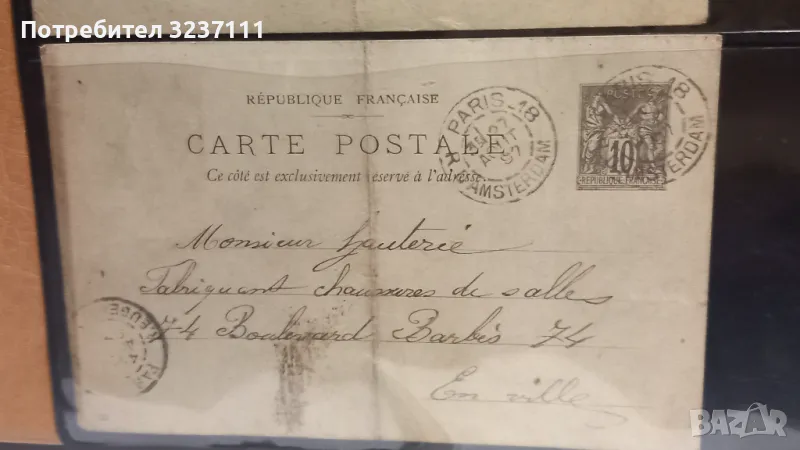 Потребител 3237111
RÉPUBLIQUE FRANÇAISE
CARTE POSTALE
Ce côté est exclusivement réservé à l'adresse
PARIS_18
27
AOUT
97
R. D'AMSTERDAM
POSTES
10
REPUBLIQUE FRANÇAISE
IS_18
STERDAM
Monsieur Hauterie
Fabriquant chaussures de salles
74 Boulevard Barbès 74
En ville
BAZAR